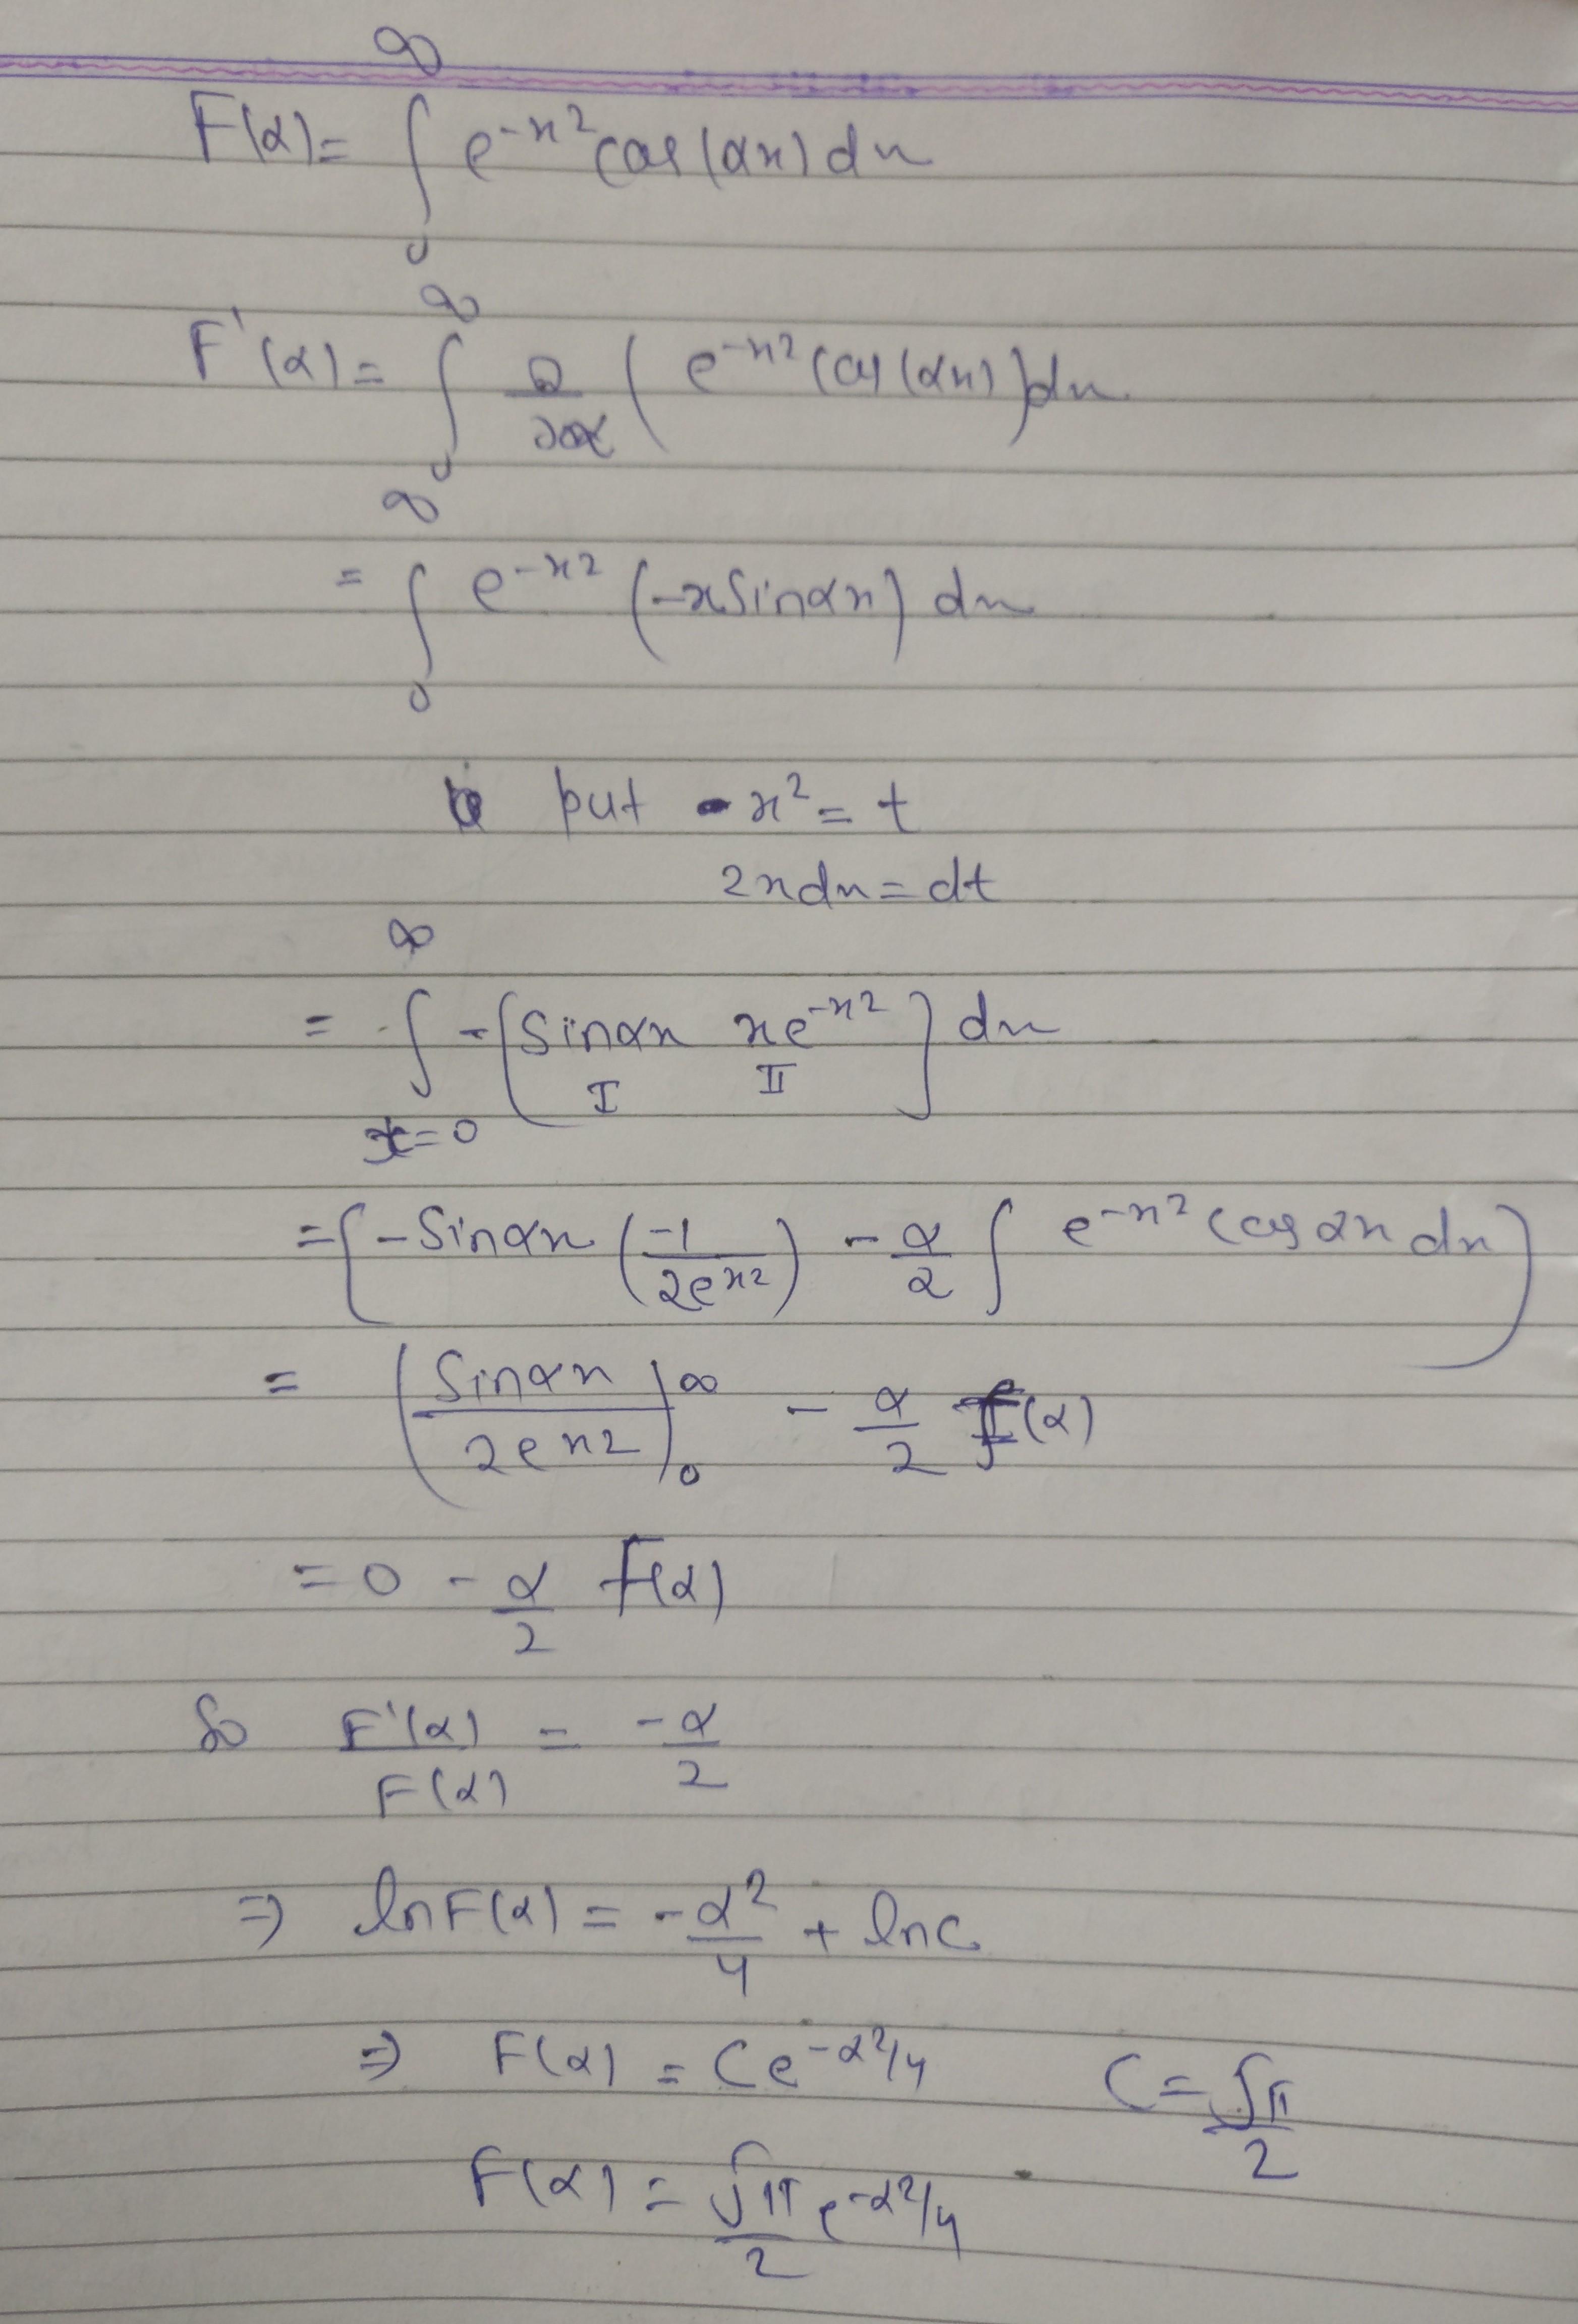 F(α) = ∫₀^∞ e^{-x²} cos(αx) dx
F'(α) = ∫₀^∞ ∂/∂α ( e^{-x²} cos(αx) ) dx
= ∫₀^∞ e^{-x²} (-x sinαx) dx
put x² = t
2x dx = dt
= ∫_{x=0}^∞ -[ sinαx xe^{-x²} ] dx
I II
= [ -Sinαx ( -1/2e^{x²} ) - α/2 ∫ e^{-x²} cosαx dx ]
= ( Sinαx / 2e^{x²} )₀^∞ - α/2 F(α)
= 0 - α/2 F(α)
So F'(α)/F(α) = -α/2
⇒ lnF(α) = -α²/4 + lnc
⇒ F(α) = Ce^{-α²/4} C = √π/2
F(α) = √π/2 e^{-α²/4}